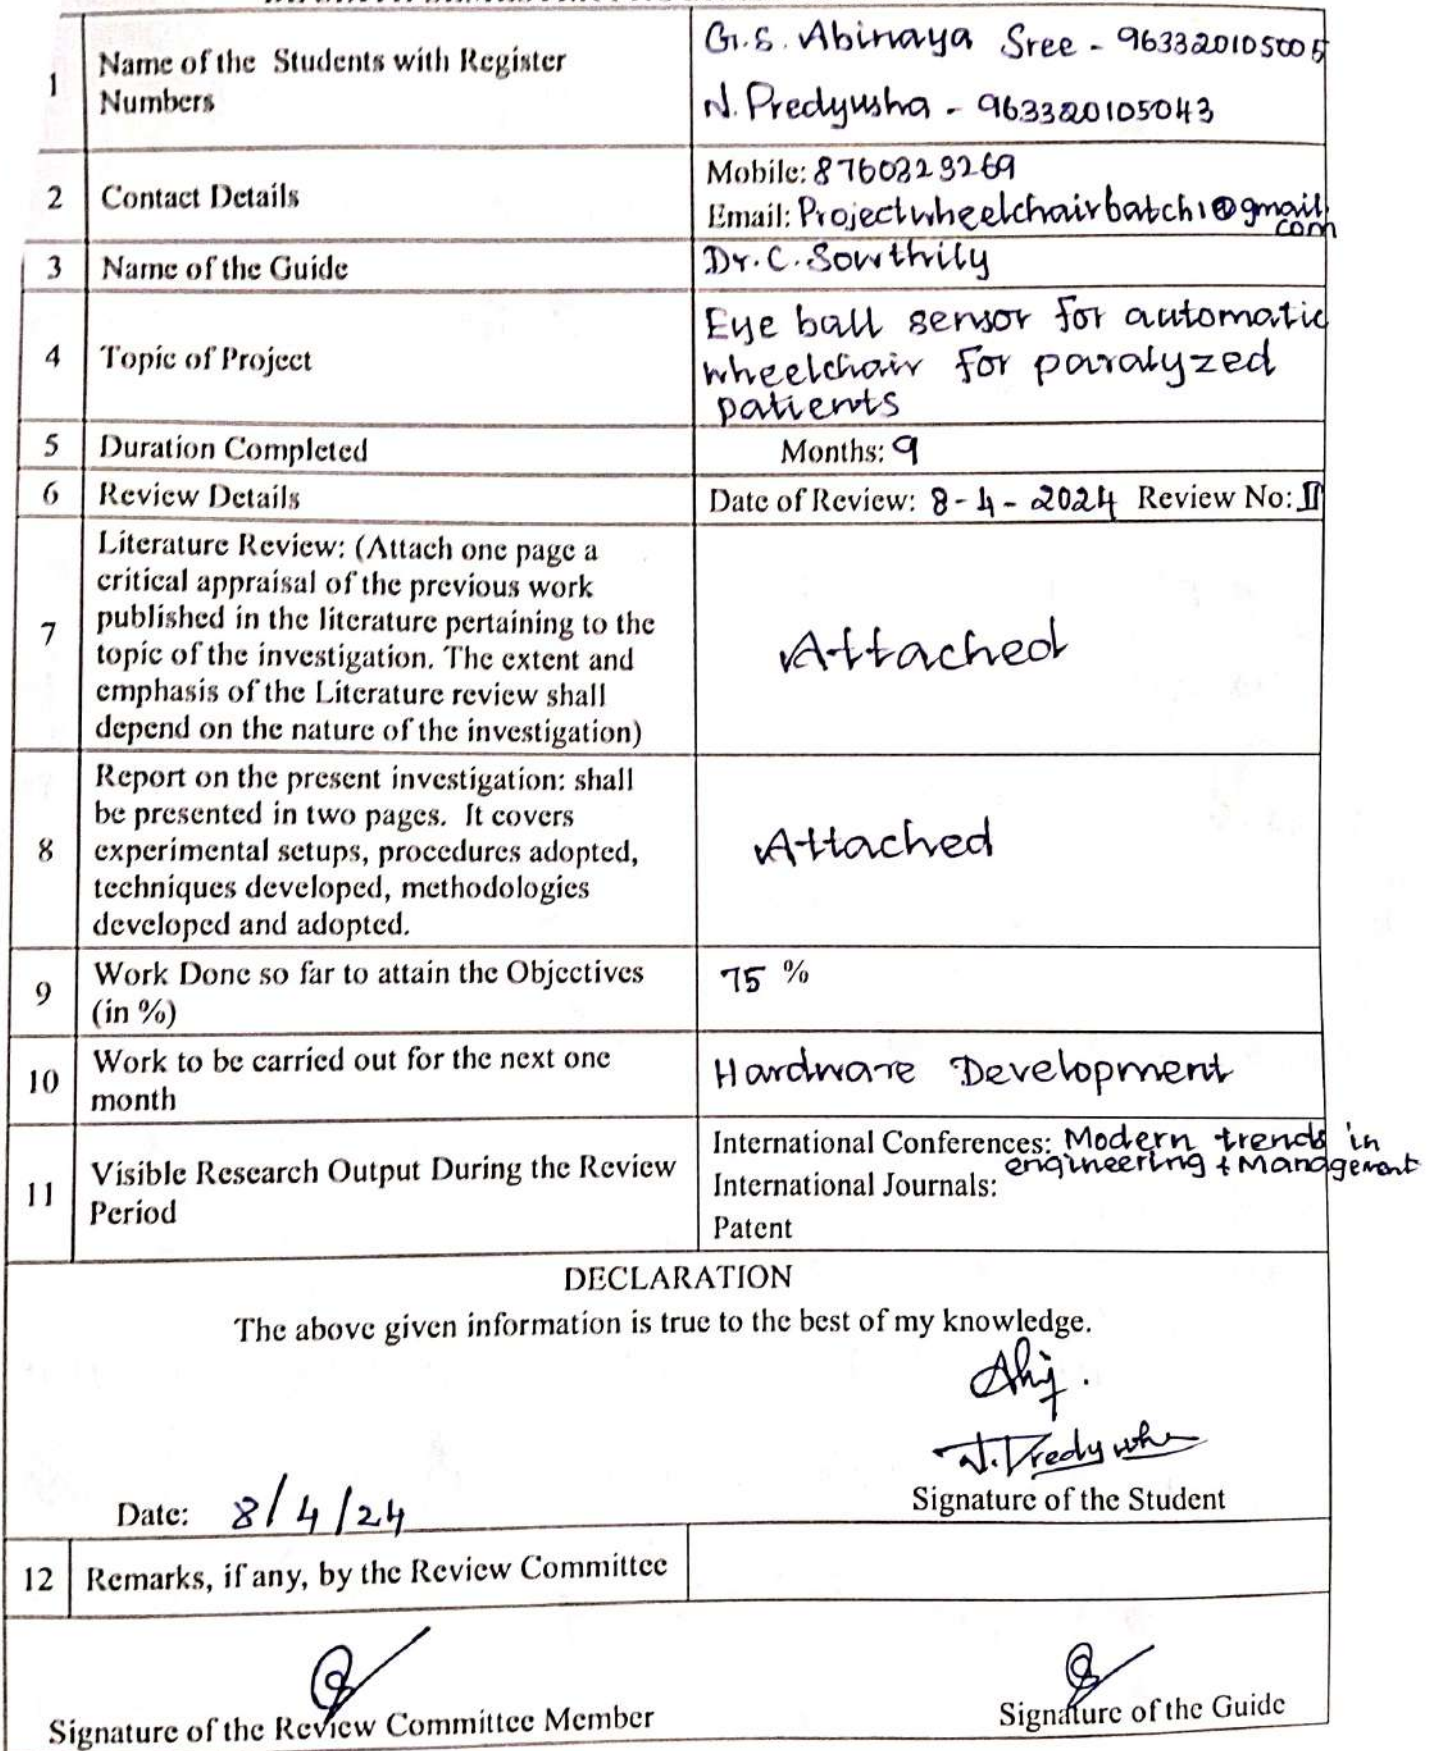 1
Name of the Students with Register
Numbers
G.S. Abinaya Sree - 963320105005
N. Predyusha - 963320105043
2
Contact Details
Mobile: 8760329269
Email: Projectwheelchairbatch1@gmail.
com
3
Name of the Guide
Dr. C. Sowthily
4
Topic of Project
Eye ball sensor for automatic
wheelchair for paralyzed
patients
5
Duration Completed
Months: 9
6
Review Details
Date of Review: 8-4-2024 Review No: II
7
Literature Review: (Attach one page a
critical appraisal of the previous work
published in the literature pertaining to the
topic of the investigation. The extent and
emphasis of the Literature review shall
depend on the nature of the investigation)
Attached
8
Report on the present investigation: shall
be presented in two pages. It covers
experimental setups, procedures adopted,
techniques developed, methodologies
developed and adopted.
Attached
9
Work Done so far to attain the Objectives
(in %)
75 %
10
Work to be carried out for the next one
month
Hardware Development
11
Visible Research Output During the Review
Period
International Conferences: Modern trends in
engineering + Management
International Journals:
Patent
DECLARATION
The above given information is true to the best of my knowledge.
N. Predyusha
Signature of the Student
Date: 8/4/24
12
Remarks, if any, by the Review Committee
Signature of the Review Committee Member
Signature of the Guide